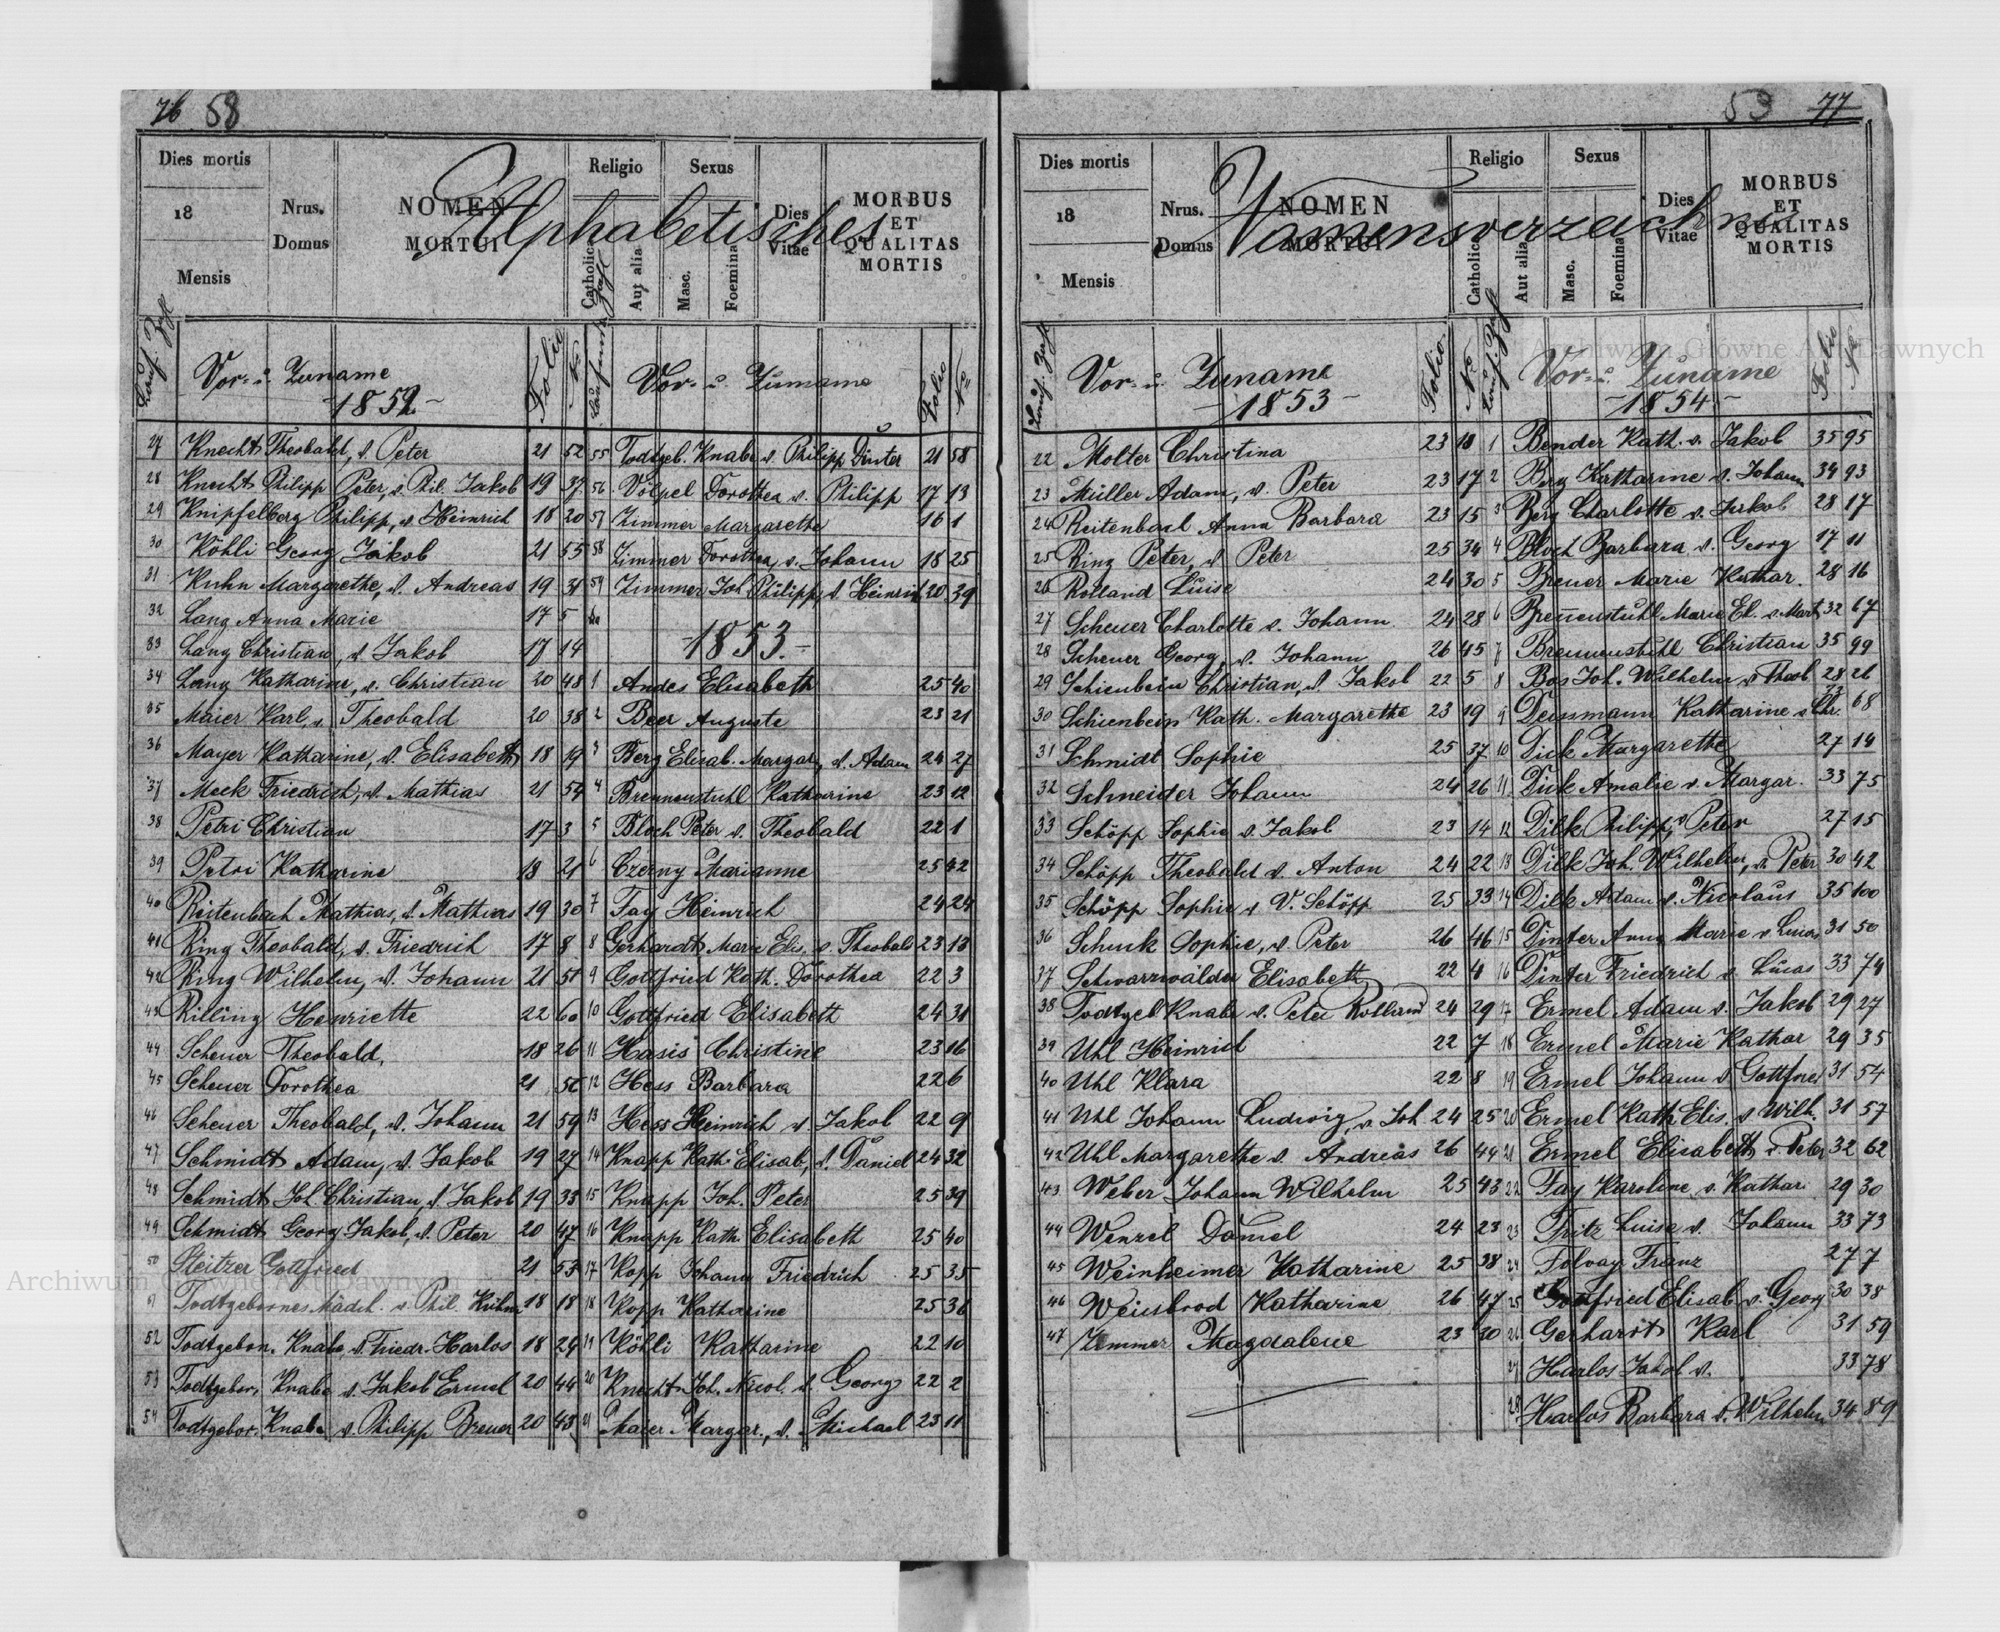 76 58
Dies mortis
18
Mensis
Nrus. Domus
NOMEN MORTUI
Religio
Catholica
Aut alia
Sexus
Masc.
Foemina
Dies Vitae
MORBUS ET QUALITAS MORTIS
Alphabetisches
Vor- u. Zuname
-1852-
Folio
No
Vor- u. Zuname
Folio
No
27 Knecht Theobald, v. Peter 21 52
28 Knecht Philipp Peter, v. Phil. Jakob 19 37
29 Knipfelberg Philipp, v. Heinrich 18 20
30 Köhli Georg Jakob 21 55
31 Kuhn Margarethe, v. Andreas 19 31
32 Lang Anna Marie 17 5
33 Lang Christian, v. Jakob 17 14
34 Lang Katharine, v. Christian 20 48
35 Maier Karl, v. Theobald 20 38
36 Mayer Katharine, v. Elisabeth 18 19
37 Meck Friedrich, v. Mathias 21 54
38 Petri Christian 17 3
39 Petri Katharine 18 21
40 Reitenbach Mathias, v. Mathias 19 30
41 Ring Theobald, v. Friedrich 17 8
42 Ring Wilhelm, v. Johann 21 51
43 Rilling Henriette 22 60
44 Scheuer Theobald, 18 26
45 Scheuer Dorothea 21
46 Scheuer Theobald, v. Johann 21 59
47 Schmidt Adam, v. Jakob 19 27
48 Schmidt Joh Christian, v. Jakob 19 33
49 Schmidt Georg Jakob, v. Peter 20 47
50 Steitzer Gottfried 21 53
51 Todtgebornes Mädch. v. Phil. Kuhn 18 18
52 Todtgebor. Knabe, v. Friedr. Harlos 18 24
53 Todtgebor. Knabe v. Jakob Ermel 20 44
54 Todtgebor. Knabe v. Philipp Breuer 20 43
55 Todtgeb. Knabe v. Philipp Dinter 21 58
56 Völpel Dorothea v. Philipp 17 13
57 Zimmer Margarethe 16 1
58 Zimmer Dorothea, v. Johann 18 25
59 Zimmer Joh Philipp, v. Heinrich 20 39
-1853.-
1 Andes Elisabeth 25 40
2 Beer Auguste 23 21
3 Berg Elisab. Margar., v. Adam 24 27
4 Brennenstuhl Katharine 23 12
5 Bloch Peter v. Theobald 22 1
6 Czerny Marianne 25 42
7 Fay Heinrich 24 24
8 Gerhardt Marie Elis. v. Theobald 23 13
9 Gottfried Kath. Dorothea 22 3
10 Gottfried Elisabeth 24 31
11 Hasis Christine 23 16
12 Hess Barbara 22 6
13 Hess Heinrich v. Jakob 22 9
14 Knapp Kath. Elisab, v. Daniel 24 32
15 Knapp Joh. Peter 25 39
16 Knapp Kath. Elisabeth 25 40
17 Kopp Johann Friedrich 25 35
18 Kopp Katharine 25 36
19 Köhli Katharine 22 10
20 Knecht Joh. Nicol. v. Georg 22 2
21 Maier Margar., v. Michael 23 11
53 77
Dies mortis
18
Mensis
Nrus. Domus
NOMEN MORTUI
Religio
Catholica
Aut alia
Sexus
Masc.
Foemina
Dies Vitae
MORBUS ET QUALITAS MORTIS
Namensverzeichniß
Vor- u. Zuname
-1853-
Folio.
No
Vor- u. Zuname
-1854-
Folio
No
22 Molter Christina 23 18
23 Müller Adam, v. Peter 23 17
24 Reitenbach Anna Barbara 23 15
25 Ring Peter, v. Peter 25 34
26 Rolland Luise 24 30
27 Scheuer Charlotte v. Johann 24 28
28 Scheuer Georg, v. Johann 26 45
29 Schienbein Christian, v. Jakob 22 5
30 Schienbein Kath. Margarethe 23 19
31 Schmidt Sophie 25 37
32 Schneider Johann 24 26
33 Schöpp Sophie v. Jakob 23 14
34 Schöpp Theobald v. Anton 24 22
35 Schöpp Sophie v. V. Schöpp 25 33
36 Schuck Sophie, v. Peter 26 46
37 Schwarzwälder Elisabeth 22 4
38 Todtgeb Knabe v. Peter Rolland 24 29
39 Uhl Heinrich 22 7
40 Uhl Klara 22 8
41 Uhl Johann Ludwig, v. Joh. 24 25
42 Uhl Margarethe v. Andreas 26 44
43 Weber Johann Wilhelm 25 43
44 Wenzel Daniel 24 23
45 Weinheimer Katharine 25 38
46 Weissbrod Katharine 26 47
47 Zimmer Magdalene 23 20
1 Bender Kath. v. Jakob 35 95
2 Berg Katharine v. Johann 34 93
3 Berg Charlotte v. Jakob 28 17
4 Bloch Barbara v. Georg 17 11
5 Breuer Marie Kathar. 28 16
6 Brennenstuhl Marie El. v. Mart 32 67
7 Brennenstuhl Christian 35 99
8 Bos Joh. Wilhelm v. Theob 28 26
9 Deissmann Katharine v. Chr. 68
10 Dick Margarethe 27 14
11 Dick Amalie v. Margar. 33 75
12 Dilk Philipp, v. Peter 27 15
13 Dilk Joh. Wilhelm, v. Peter 30 42
14 Dilk Adam v. Nicolaus 35 100
15 Dinter Anna Marie v. Lucas 31 50
16 Dinter Friedrich v. Lucas 33 74
17 Ermel Adam v. Jakob 29 27
18 Ermel Marie Kathar 29 35
19 Ermel Johann v. Gottfried 31 54
20 Ermel Kath Elis. v. Wilh. 31 57
21 Ermel Elisabeth v. Peter 32 62
22 Fay Karoline v. Kathar 29 30
23 Fritz Luise v. Johann 33 73
24 Folvay Franz 27 7
25 Gottfried Elisab. v. Georg 30 38
26 Gerhardt Karl 31 59
27 Harlos Jakob v. 33 78
28 Harlos Barbara v. Wilhelm 34 89
Archiwum Główne Akt Dawnych
Archiwum Główne Akt Dawnych